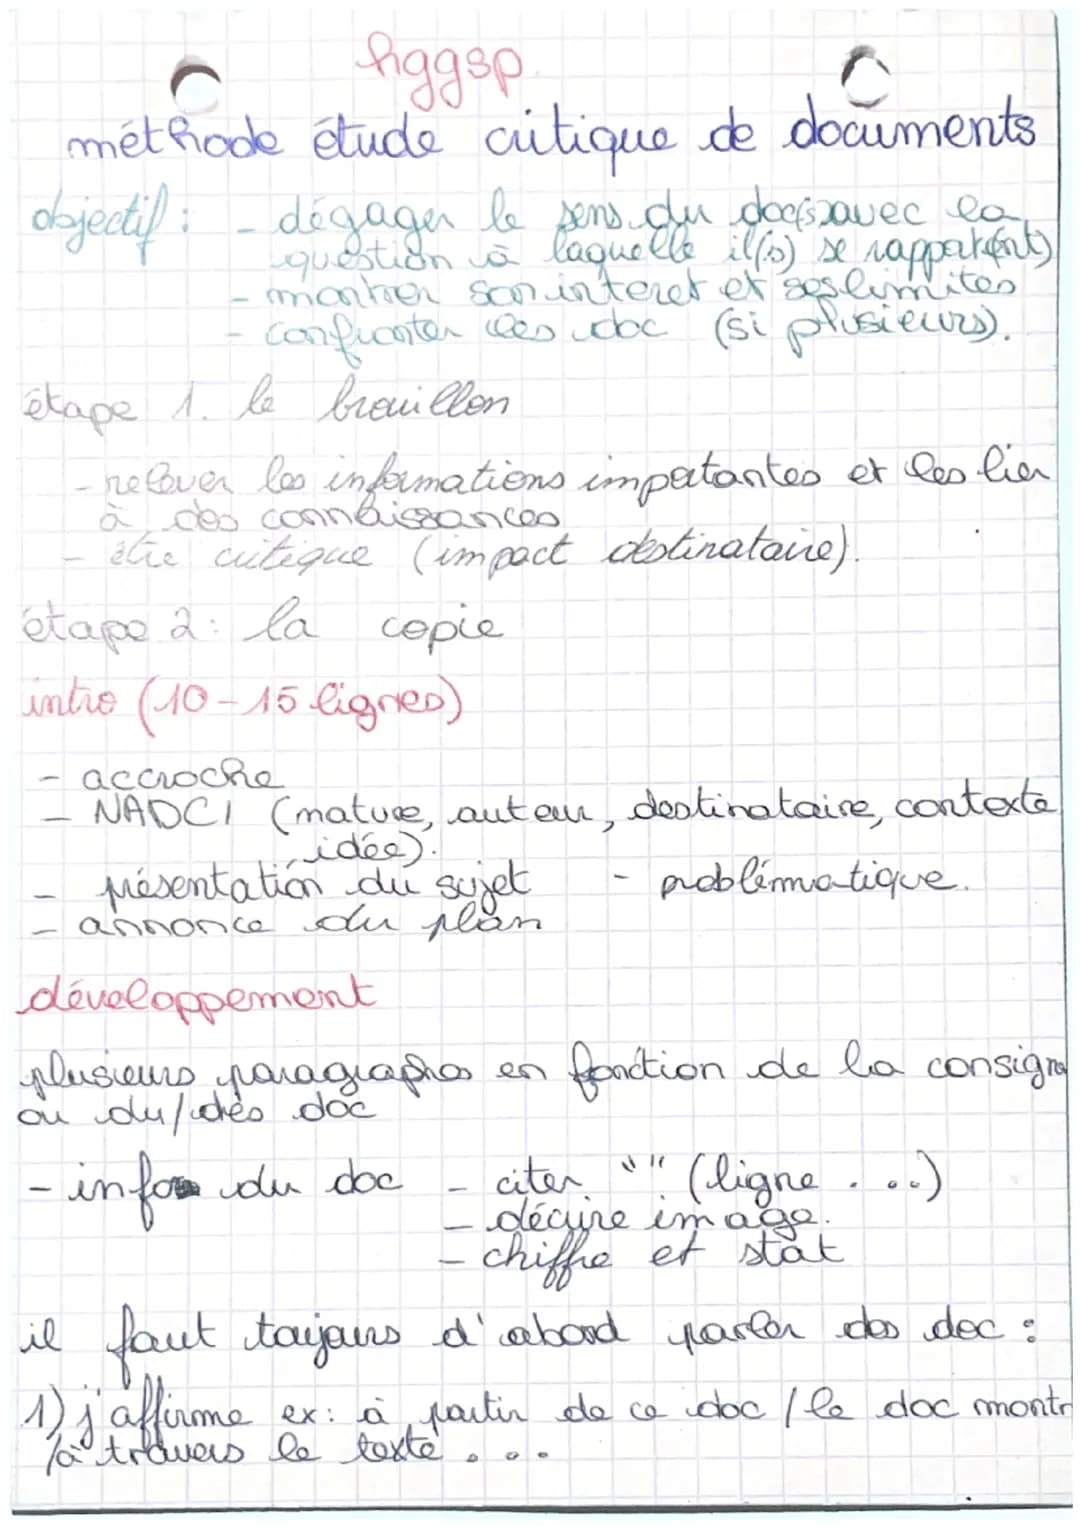 hggsp
méthode étude critique de documents
objectif : - dégager le sens du doc(s) avec la
question à laquelle il(s) se rapport(ent)
- montrer son interet et ses limites
- confronter les doc (si plusieurs).
étape 1. le brouillon
- relever les informations importantes et les lier
à des connaissances
- être critique (impact destinataire).
étape 2 : la copie
intro (10-15 lignes)
- accroche
- NADCI (nature, auteur, destinataire, contexte
idée).
- présentation du sujet - problématique.
- annonce du plan
développement
plusieurs paragraphes en fonction de la consigne
ou du/des doc
- info du doc - citer " " (ligne ....)
- décrire image.
- chiffre et stat
il faut toujours d'abord parler des doc :
1) j'affirme ex: à partir de ce doc / le doc montr
/à travers le texte ...